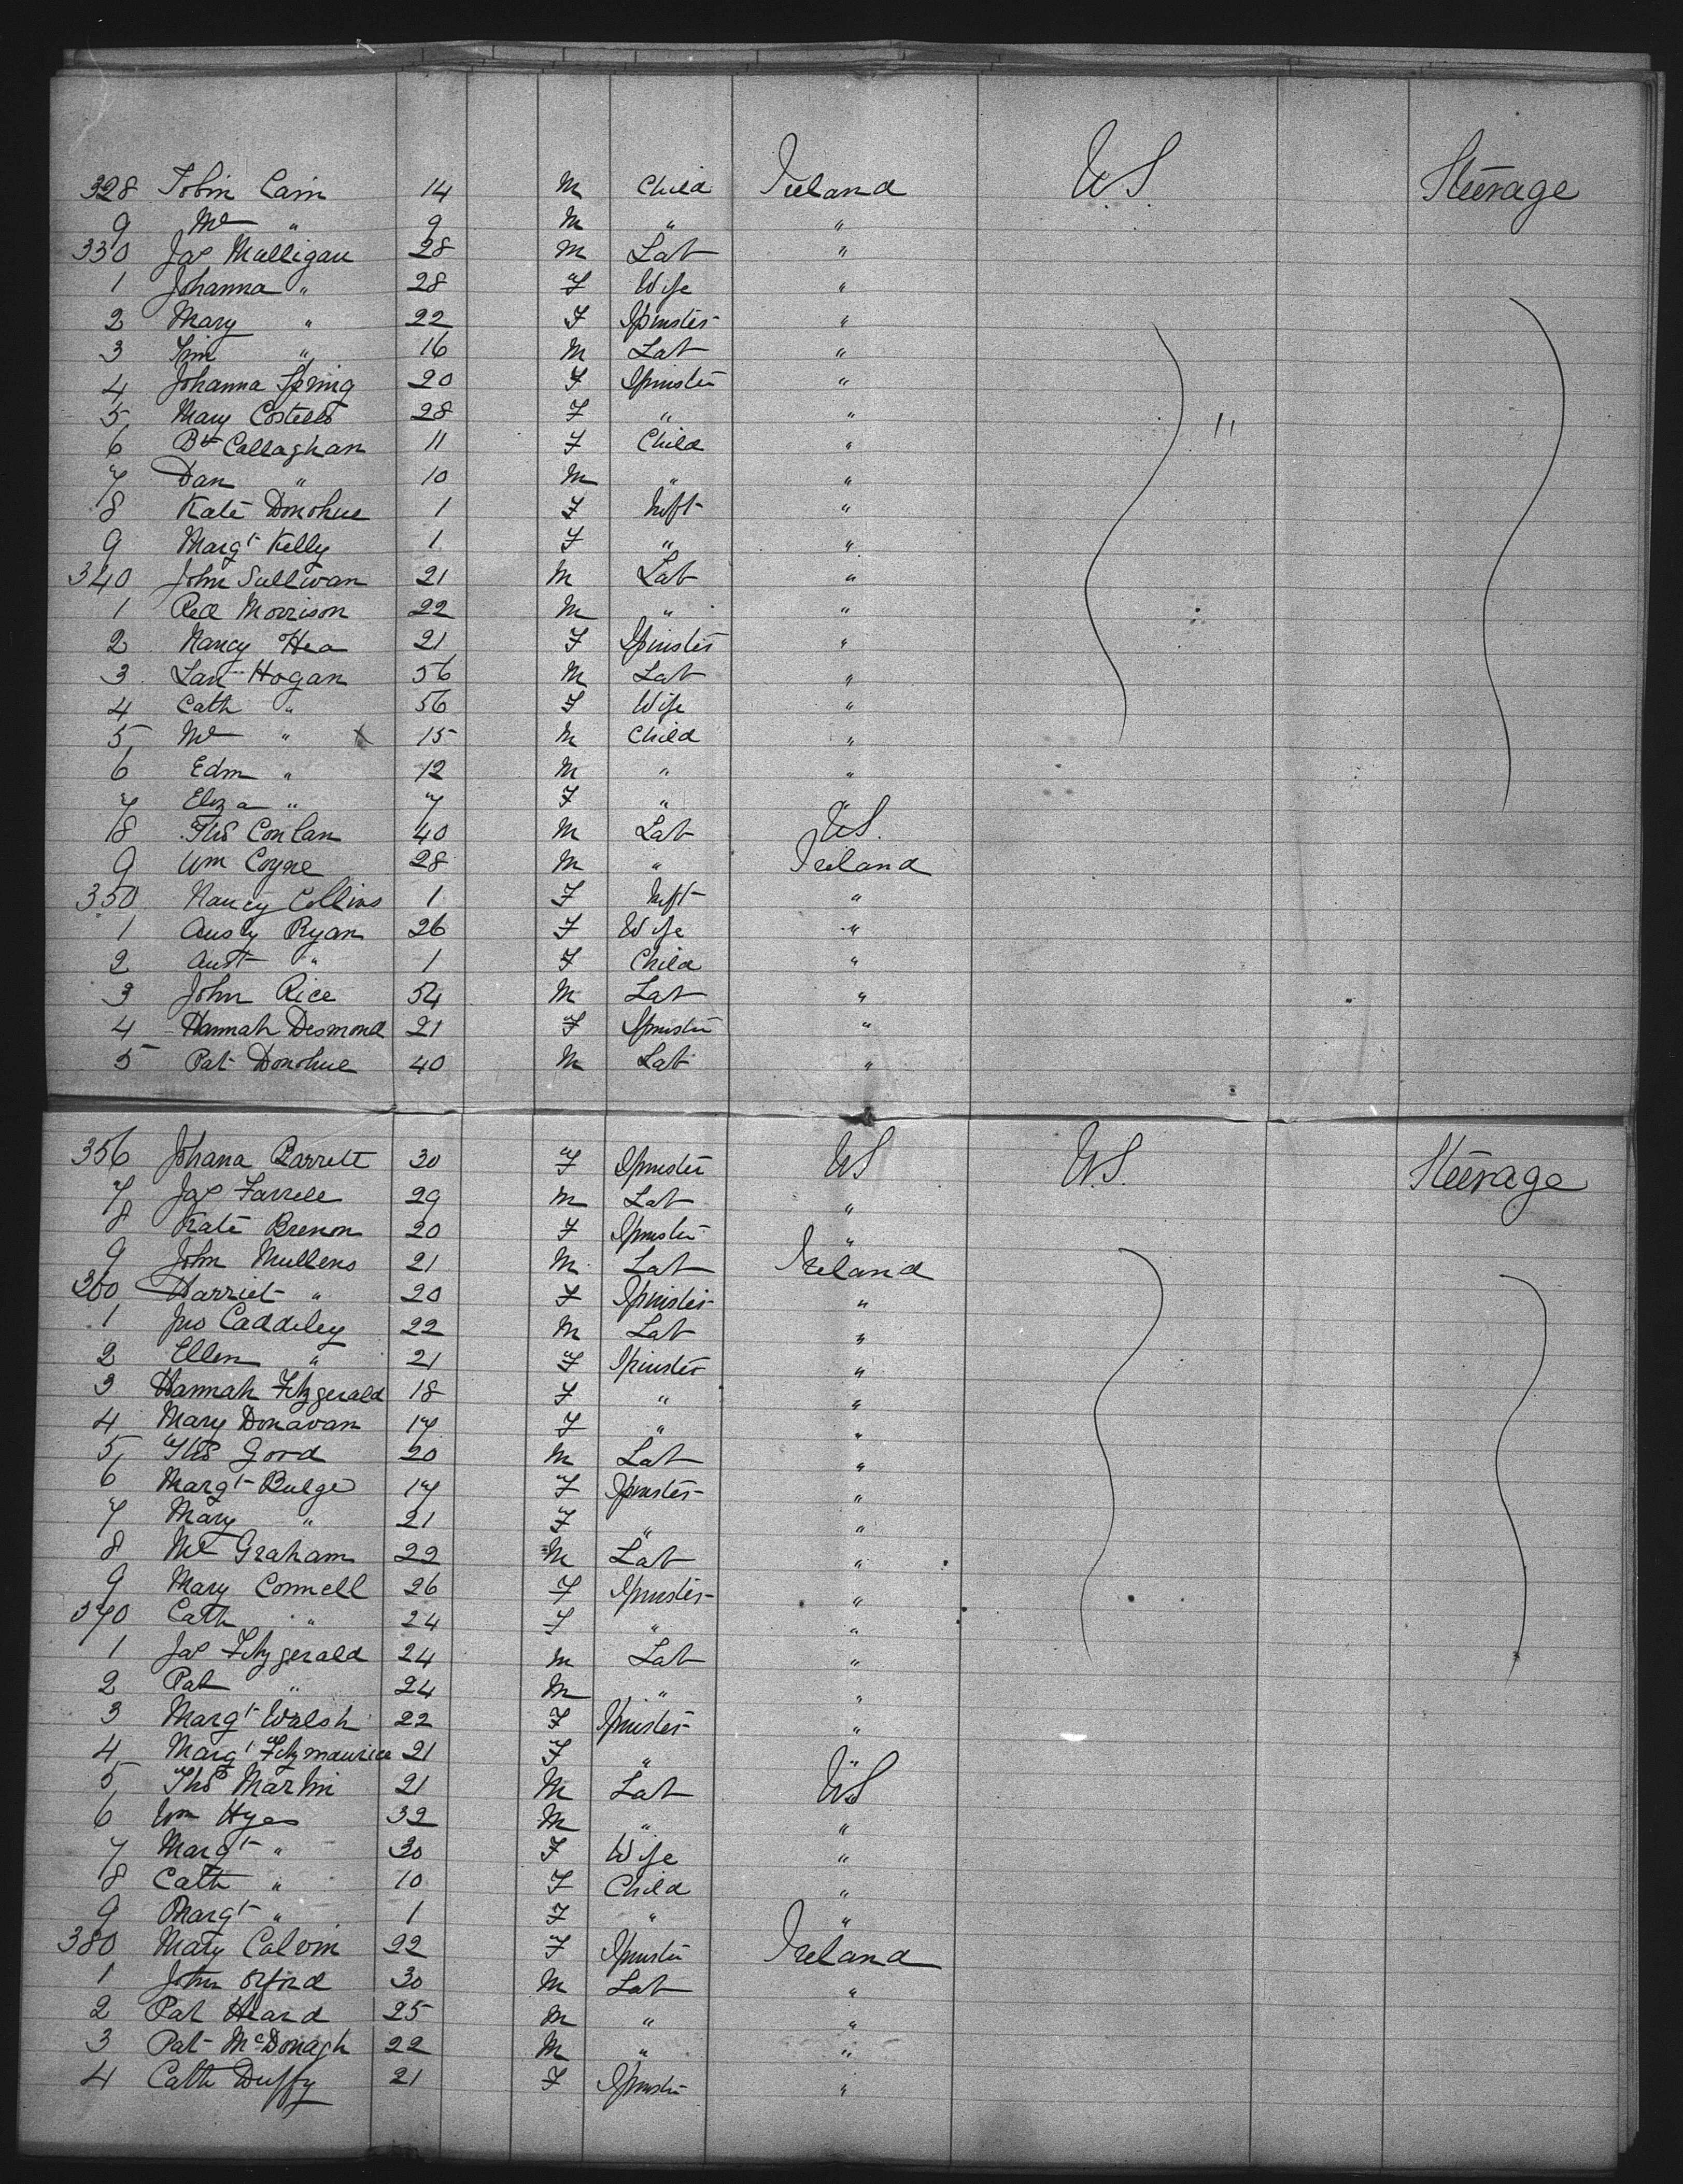 328 Tobin Cain 14 M Child Ireland U.S. Steerage
9 Ml " 9 M " "
330 Jas Mulligan 28 M Lab "
1 Johanna " 28 F Wife "
2 Mary " 22 F Spinster "
3 Tim " 16 M Lab "
4 Johanna Spring 20 F Spinster "
5 Mary Costello 28 F " " "
6 Bt Callaghan 11 F Child "
7 Dan " 10 M " "
8 Kate Donohue 1 F Inft "
9 Margt Kelly 1 F " "
340 John Sullivan 21 M Lab "
1 Red Morrison 22 M " "
2 Nancy Hea 21 F Spinster "
3 Hogan 56 M Lab "
4 Cath " 56 F Wife "
5 Ml " x 15 M Child "
6 Edm " 12 M " "
7 Eliza " 7 F " "
8 Ths Conlan 40 M Lab U.S.
9 Wm Coyne 28 M " Ireland
350 Nancy Collins 1 F Inft "
1 Ryan 26 F Wife "
2 " 1 F Child "
3 John Rice 54 M Lab "
4 Hannah Desmond 21 F Spinster "
5 Pat Donohue 40 M Lab "
356 Johana Barrett 30 F Spinster US U.S. Steerage
7 Jas Farrell 29 M Lab "
8 Kate Brenon 20 F Spinster "
9 John Mullens 21 M Lab Ireland
360 Harriet " 20 F Spinster "
1 Jno Caddeley 22 M Lab "
2 Ellen " 21 F Spinster "
3 Hannah Fitzgerald 18 F " "
4 Mary Donavan 17 F " "
5 Ths Gord 20 M Lab "
6 Margt Bulge 17 F Spinster "
7 Mary " 21 F " "
8 Ml Graham 22 M Lab "
9 Mary Connell 26 F Spinster "
370 Cath " 24 F " "
1 Jas Fitzgerald 24 M Lab "
2 Pat " 24 M " "
3 Margt Walsh 22 F Spinster "
4 Margt Fitzmaurice 21 F " "
5 Ths Martin 21 M Lab US
6 Wm Hyes 32 M " "
7 Margt " 30 F Wife "
8 Cath " 10 F Child "
9 Margt " 1 F " "
380 Mary Colvin 22 F Spinster Ireland
1 John 30 M Lab "
2 Pat Heard 25 M " "
3 Pat McDonagh 22 M " "
4 Cath Duffy 21 F Spinster "